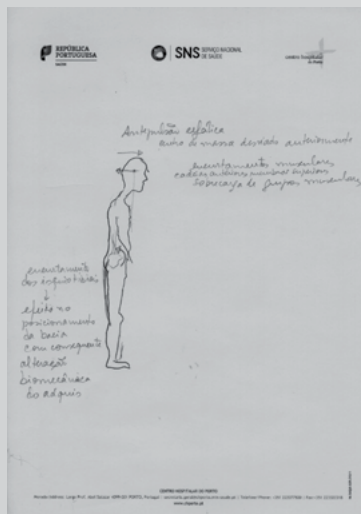 REPÚBLICA
PORTUGUESA
SAÚDE
SNS SERVIÇO NACIONAL
DE SAÚDE
Antepulsão estática
centro de massa desviado anteriormente
encurtamentos musculares
cadeias anteriores membros superiores
sobrecarga de grupos musculares
encurtamento
dos isquiotibiais
↓
efeito no
posicionamento
da bacia
com consequente
alteração
biomecânica
do ráquis
CENTRO HOSPITALAR DO PORTO